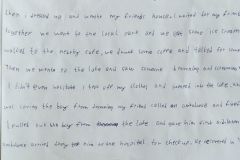 then I dressed up and wents my friends house. I waited for my friend
together we went to one local park and we ate some ice cream
walked to the nearby cafe, we drunk some coffe and talked for some
Then we wents to the lake and saw someone drowning and screaming
I didn't even hesitate I took off my clothes and jumped into the lake, while
was saving the boy from drowning my friend called an ambulance and fire
I pulled out the boy from the lake and gave him first aid
ambulance arrived they took him to the hospital for checkup. He recovered in